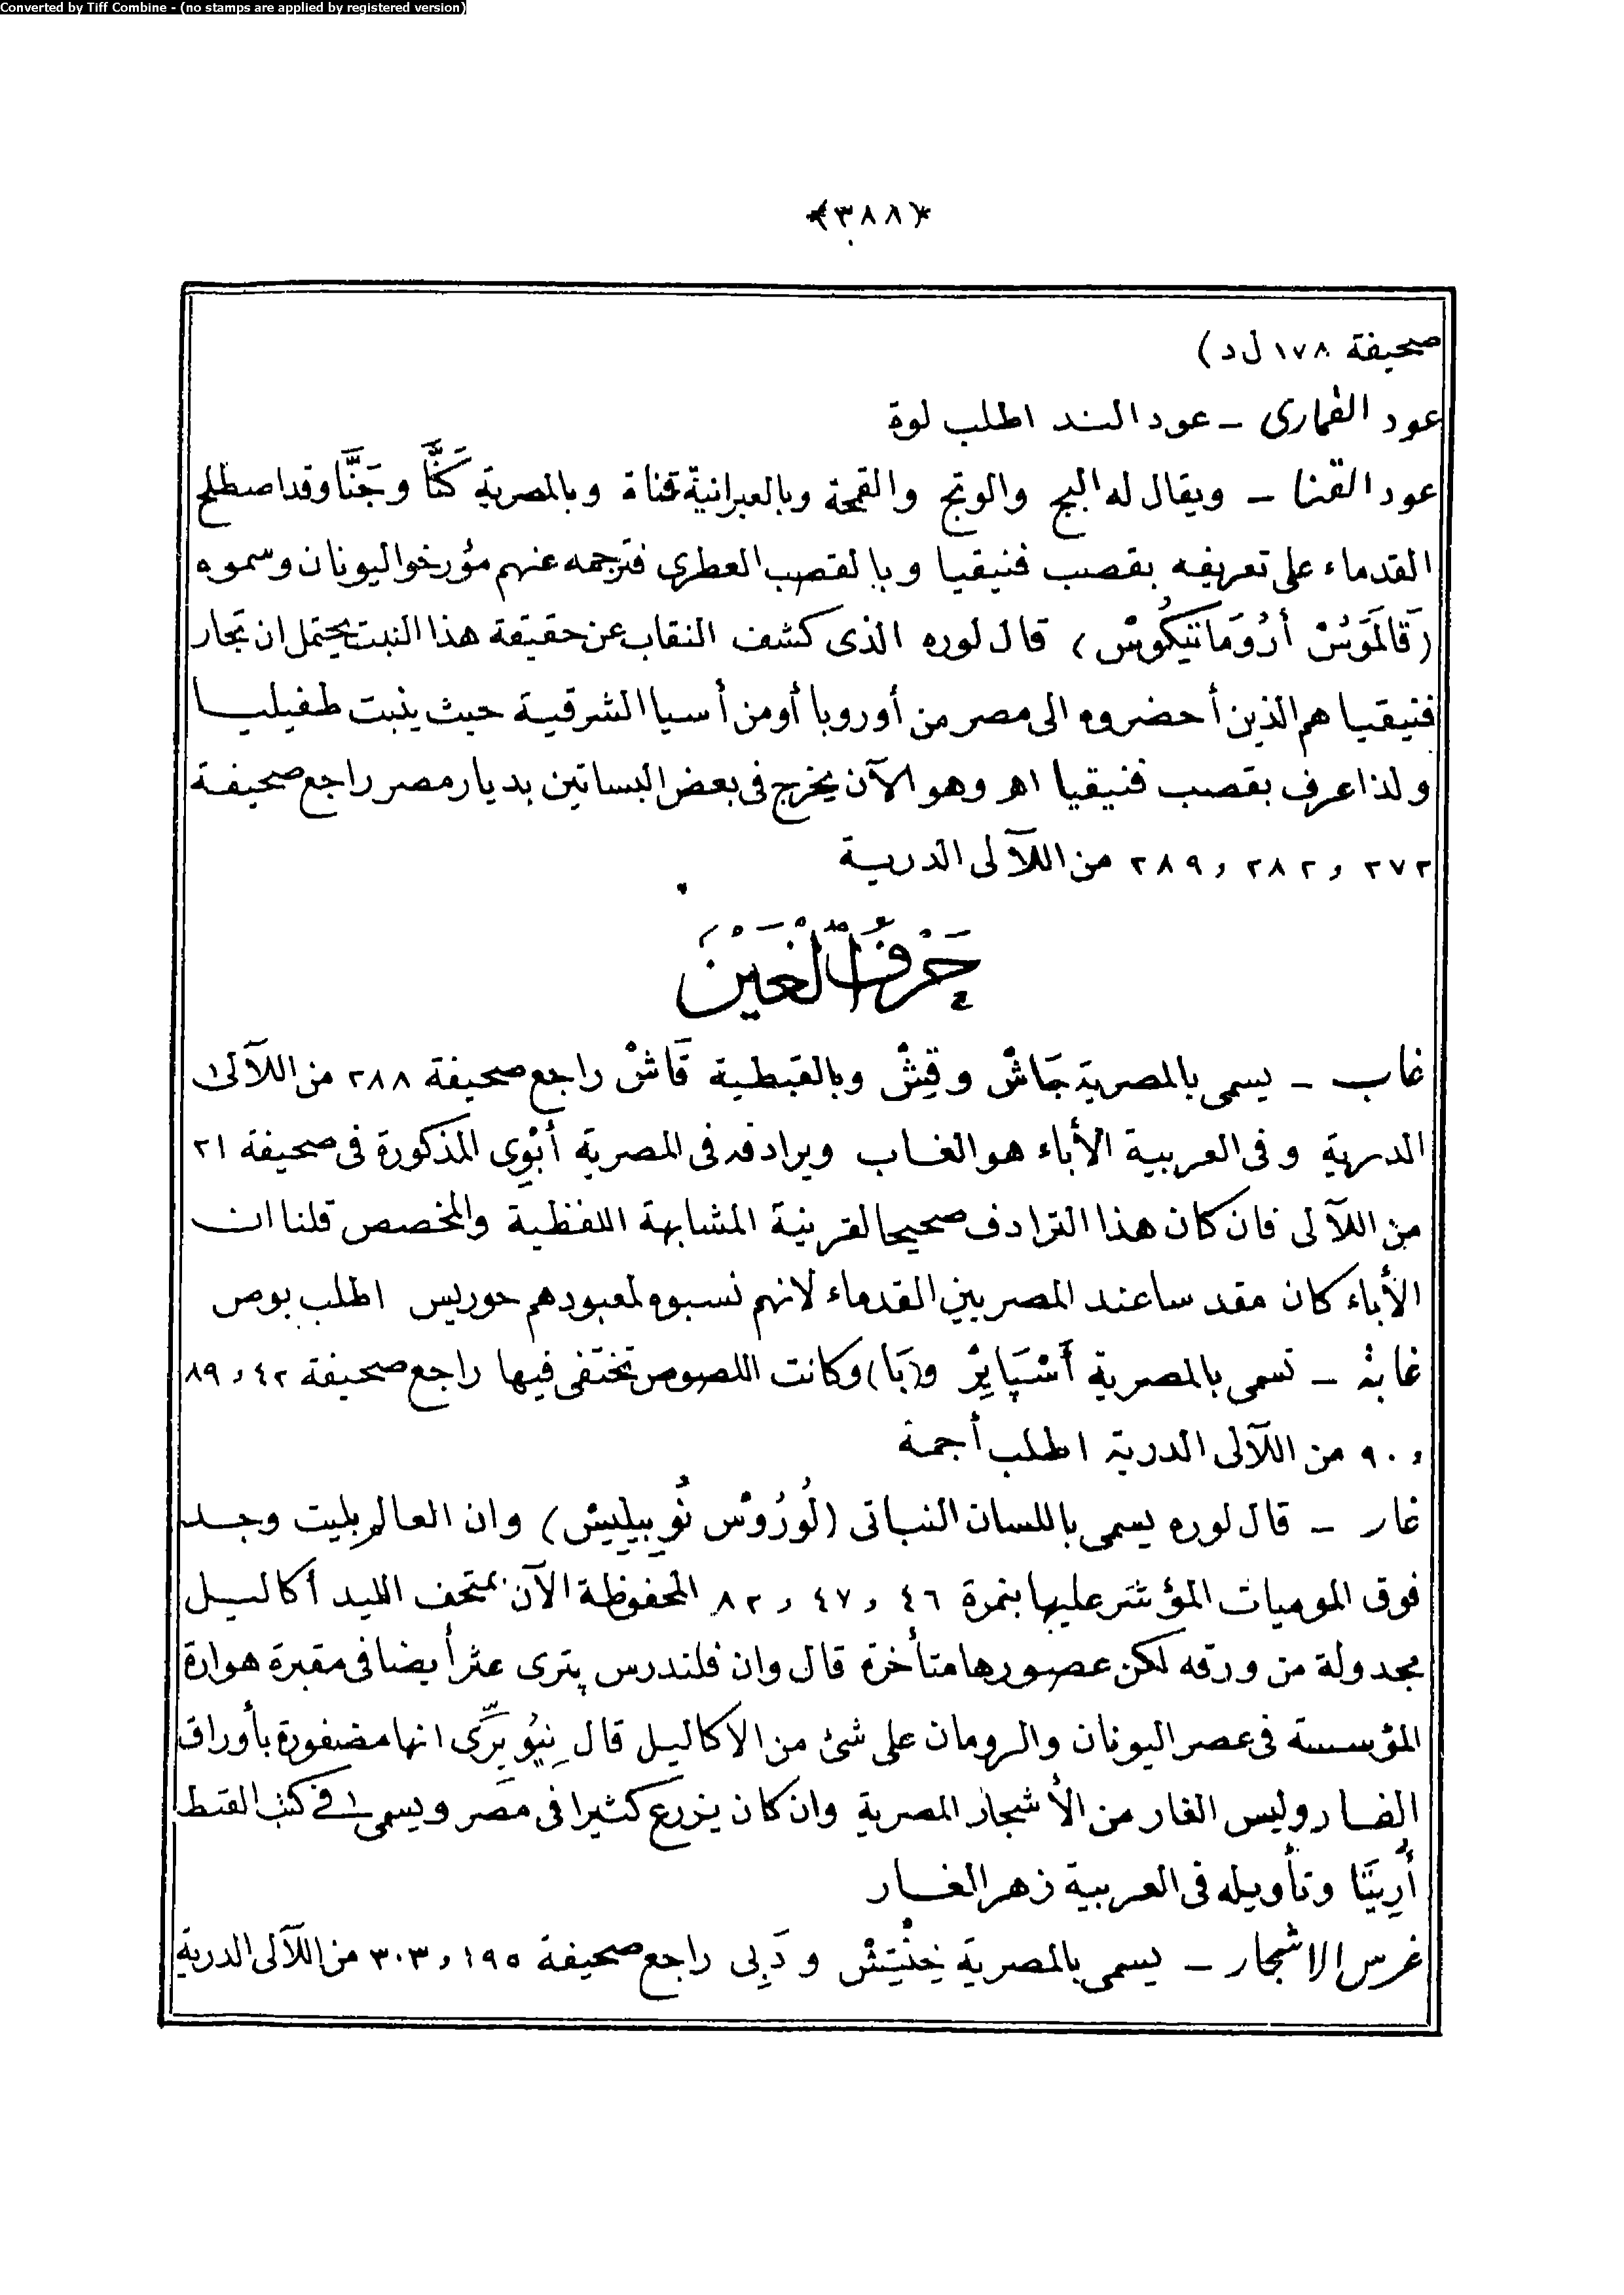 Converted by Tiff Combine - (no stamps are applied by registered version)
﴿٣٨٨﴾
صحيفة ١٧٨ ل د)
عود القمارى - عود الند اطلب لوة
عود القنا - ويقال له البج والوتج والقمحة وبالعبرانية قناة وبالمصرية كَنَّا وجَنَّا وقد اصطلح
القدماء على تعريفه بقصب فنيقيا وبالقصب العطرى فترجمه عنهم مؤرخوا اليونان وسموه
(قَالَمَوُسْ أرُومَاتيكُوسْ) قال لوره الذى كشف النقاب عن حقيقة هذا النبت يحتمل ان تجار
فنيقيا هم الذين أحضروه الى مصر من أوروبا أو من أسيا الشرقية حيث ينبت طفيليا
ولذا عرف بقصب فنيقيا اهـ وهو الآن يخرج فى بعض البساتين بديار مصر راجع صحيفة
٢٧٢ و ٢٨٢ و ٢٨٩ من اللآلى الدرية
حَرْفُ الْغَيْنِ
غاب - يسمى بالمصرية جَاشْ وقِشْ وبالقبطية قَاشْ راجع صحيفة ٢٨٨ من اللآلئ
الدرية وفى العربية الأباء هو الغاب ويرادفه فى المصرية أبْوِى المذكورة فى صحيفة ٢١
من اللآلى فان كان هذا الترادف صحيحا لقرينة المشابهة اللفظية والمخصص قلنا ان
الأباء كان مقدسا عند المصريين القدماء لانهم نسبوه لمعبودهم حوريس اطلب بوص
غابة - تسمى بالمصرية أَسْپَايِرْ و(بَا) وكانت اللصوص تختفى فيها راجع صحيفة ٤٢ و ٨٩
و ٩٠ من اللآلى الدرية اطلب أجمة
غار - قال لوره يسمى باللسان النباتى (لُورُوسْ نُوبِيلِيسْ) وان العالم بليت وجد
فوق الموميات المؤشر عليها بنمرة ٤٦ و ٤٧ و ٨٢ المحفوظة الآن بمتحف الليد أكاليل
مجدولة من ورقه لكن عصورها متأخرة قال وان فلندرس پترى عثر أيضا فى مقبرة هوارة
المؤسسة فى عصر اليونان والرومان على شئ من الاكاليل قال نِيُو بَرِّى انها مضفورة بأوراق
الغار وليس الغار من الأشجار المصرية وان كان يزرع كثيرا فى مصر ويسمى فى كتب القبط
أَرِيتَا وتأويله فى العربية زهر الغار
غرس الاشجار - يسمى بالمصرية خِنْتِشْ و دَبِى راجع صحيفة ١٩٥ و ٣٠٣ من اللآلى الدرية